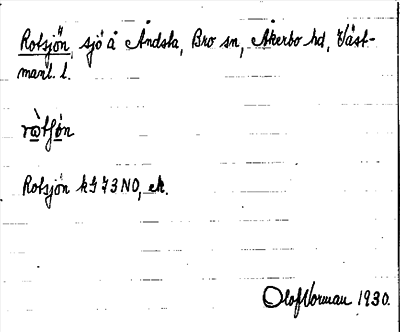 Rotsjön, sjö å Åndsta, Bro sn, Åkerbo hd, Väst-
manl. l.
Rotsjön kG73NO, ek.
Olof Norman 1930.